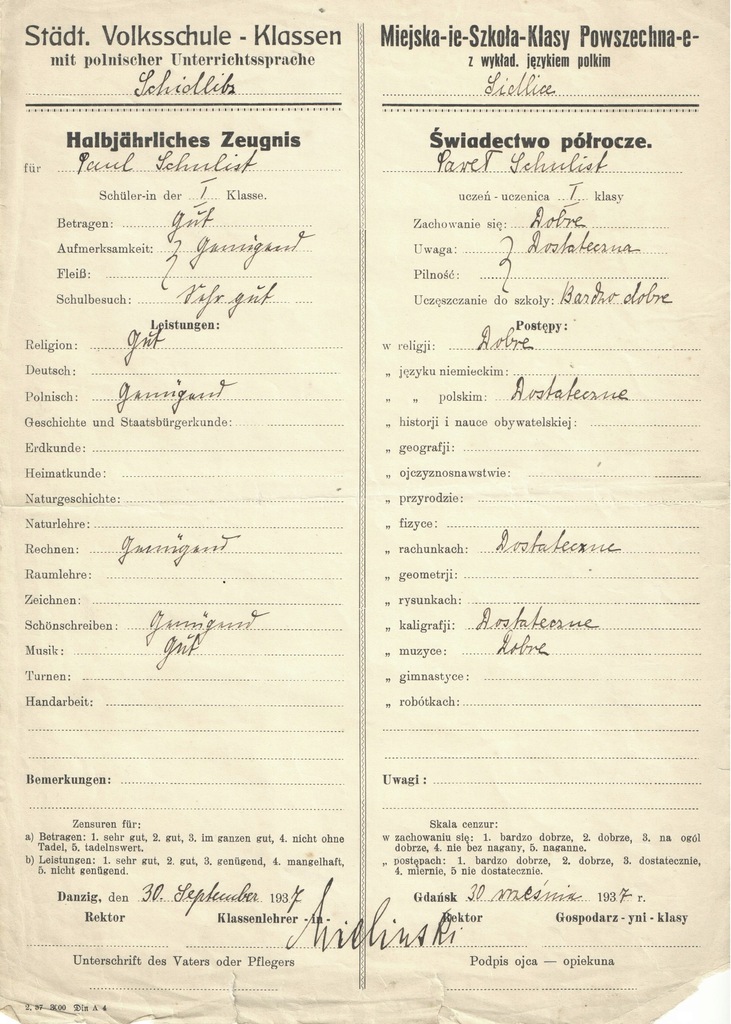 Städt. Volksschule - Klassen
mit polnischer Unterrichtssprache
Schidlitz
Halbjährliches Zeugnis
für Paul Schulist
Schüler-in der I Klasse.
Betragen: Gut
Aufmerksamkeit: } Genügend
Fleiß:
Schulbesuch: Sehr gut
Leistungen:
Religion: Gut
Deutsch:
Polnisch: Genügend
Geschichte und Staatsbürgerkunde:
Erdkunde:
Heimatkunde:
Naturgeschichte:
Naturlehre:
Rechnen: Genügend
Raumlehre:
Zeichnen:
Schönschreiben: Genügend
Musik: Gut
Turnen:
Handarbeit:
Bemerkungen:
Zensuren für:
a) Betragen: 1. sehr gut, 2. gut, 3. im ganzen gut, 4. nicht ohne
Tadel, 5. tadelnswert.
b) Leistungen: 1. sehr gut, 2. gut, 3. genügend, 4. mangelhaft,
5. nicht genügend.
Danzig, den 30. September 1937
Rektor Klassenlehrer - in -
Unterschrift des Vaters oder Pflegers
2. 37 3000 Din A 4
Miejska-ie-Szkoła-Klasy Powszechna-e-
z wykład. językiem polkim
Sidlice
Świadectwo półrocze.
Paweł Schulist
uczeń - uczenica I klasy
Zachowanie się: Dobre
Uwaga: } Dostateczna
Pilność:
Uczęszczanie do szkoły: Bardzo dobre
Postępy:
w religji: Dobre
„ języku niemieckim:
„ „ polskim: Dostateczne
„ historji i nauce obywatelskiej:
„ geografji:
„ ojczyznosnawstwie:
„ przyrodzie:
„ fizyce:
„ rachunkach: Dostateczne
„ geometrji:
„ rysunkach:
„ kaligrafji: Dostateczne
„ muzyce: Dobre
„ gimnastyce:
„ robótkach:
Uwagi:
Skala cenzur:
w zachowaniu się: 1. bardzo dobrze, 2. dobrze, 3. na ogól
dobrze, 4. nie bez nagany, 5. naganne.
„ postępach: 1. bardzo dobrze, 2. dobrze, 3. dostatecznie,
4. miernie, 5 nie dostatecznie.
Gdańsk 30 września 1937 r.
Rektor Gospodarz - yni - klasy
Mieliński
Podpis ojca — opiekuna